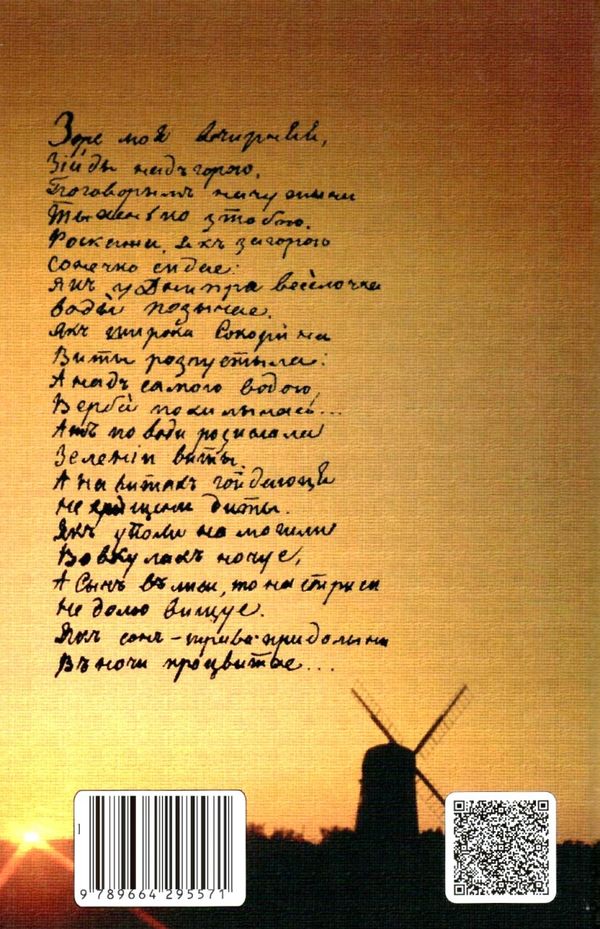 Зоре моя вчирняя,
Зійды надъ горою,
Поговорымъ
Тыхенько зтобою.
Роскажи, якъ загорою
Сонечко сидае:
Якъ у Днипра весёлочка
Воды позычае.
Якъ широка Сокорина
Виты розпустыла:
А надъ самого водою,
Верба похилылась...
Ажъ по води розиslала
Зелении виты,
А на витахъ гойдаюця
Не хрищени диты.
Якъ уполи на могили
Вовкулакъ ночуе,
А Сычъ въ лиси, то на стриси
Недолю вищуе.
Якъ сонъ-трава придолыни
Въночи процвитае...
9 789664 295571